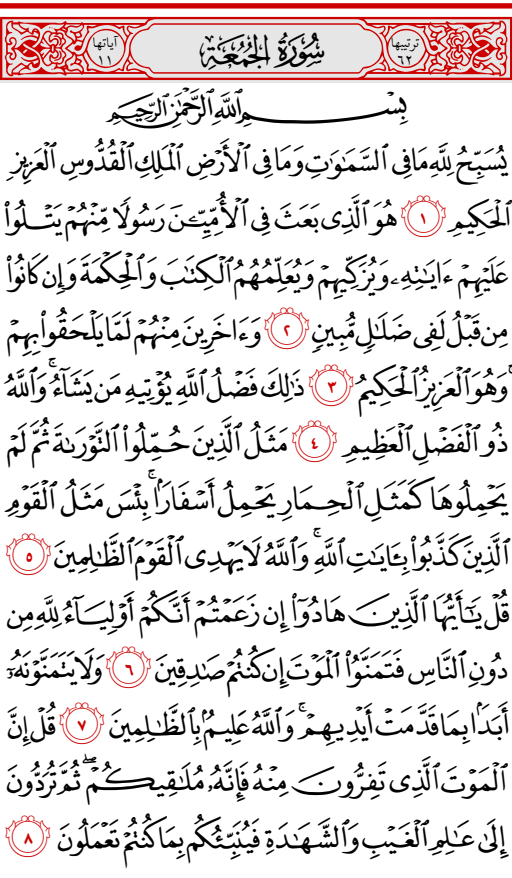 ترتيبها ٦٢ سُورَةُ الْجُمُعَةِ آياتها ١١
بِسْمِ ٱللَّهِ ٱلرَّحْمَٰنِ ٱلرَّحِيمِ
يُسَبِّحُ لِلَّهِ مَا فِى ٱلسَّمَٰوَٰتِ وَمَا فِى ٱلْأَرْضِ ٱلْمَلِكِ ٱلْقُدُّوسِ ٱلْعَزِيزِ
ٱلْحَكِيمِ ١ هُوَ ٱلَّذِى بَعَثَ فِى ٱلْأُمِّيِّـۧنَ رَسُولًا مِّنْهُمْ يَتْلُوا۟
عَلَيْهِمْ ءَايَٰتِهِۦ وَيُزَكِّيهِمْ وَيُعَلِّمُهُمُ ٱلْكِتَٰبَ وَٱلْحِكْمَةَ وَإِن كَانُوا۟
مِن قَبْلُ لَفِى ضَلَٰلٍ مُّبِينٍ ٢ وَءَاخَرِينَ مِنْهُمْ لَمَّا يَلْحَقُوا۟ بِهِمْ
ۚ وَهُوَ ٱلْعَزِيزُ ٱلْحَكِيمُ ٣ ذَٰلِكَ فَضْلُ ٱللَّهِ يُؤْتِيهِ مَن يَشَآءُ ۚ وَٱللَّهُ
ذُو ٱلْفَضْلِ ٱلْعَظِيمِ ٤ مَثَلُ ٱلَّذِينَ حُمِّلُوا۟ ٱلتَّوْرَىٰةَ ثُمَّ لَمْ
يَحْمِلُوهَا كَمَثَلِ ٱلْحِمَارِ يَحْمِلُ أَسْفَارًۢا ۚ بِئْسَ مَثَلُ ٱلْقَوْمِ
ٱلَّذِينَ كَذَّبُوا۟ بِـَٔايَٰتِ ٱللَّهِ ۚ وَٱللَّهُ لَا يَهْدِى ٱلْقَوْمَ ٱلظَّٰلِمِينَ ٥
قُلْ يَٰٓأَيُّهَا ٱلَّذِينَ هَادُوٓا۟ إِن زَعَمْتُمْ أَنَّكُمْ أَوْلِيَآءُ لِلَّهِ مِن
دُونِ ٱلنَّاسِ فَتَمَنَّوُا۟ ٱلْمَوْتَ إِن كُنتُمْ صَٰدِقِينَ ٦ وَلَا يَتَمَنَّوْنَهُۥٓ
أَبَدًۢا بِمَا قَدَّمَتْ أَيْدِيهِمْ ۚ وَٱللَّهُ عَلِيمٌۢ بِٱلظَّٰلِمِينَ ٧ قُلْ إِنَّ
ٱلْمَوْتَ ٱلَّذِى تَفِرُّونَ مِنْهُ فَإِنَّهُۥ مُلَٰقِيكُمْ ۖ ثُمَّ تُرَدُّونَ
إِلَىٰ عَٰلِمِ ٱلْغَيْبِ وَٱلشَّهَٰدَةِ فَيُنَبِّئُكُم بِمَا كُنتُمْ تَعْمَلُونَ ٨